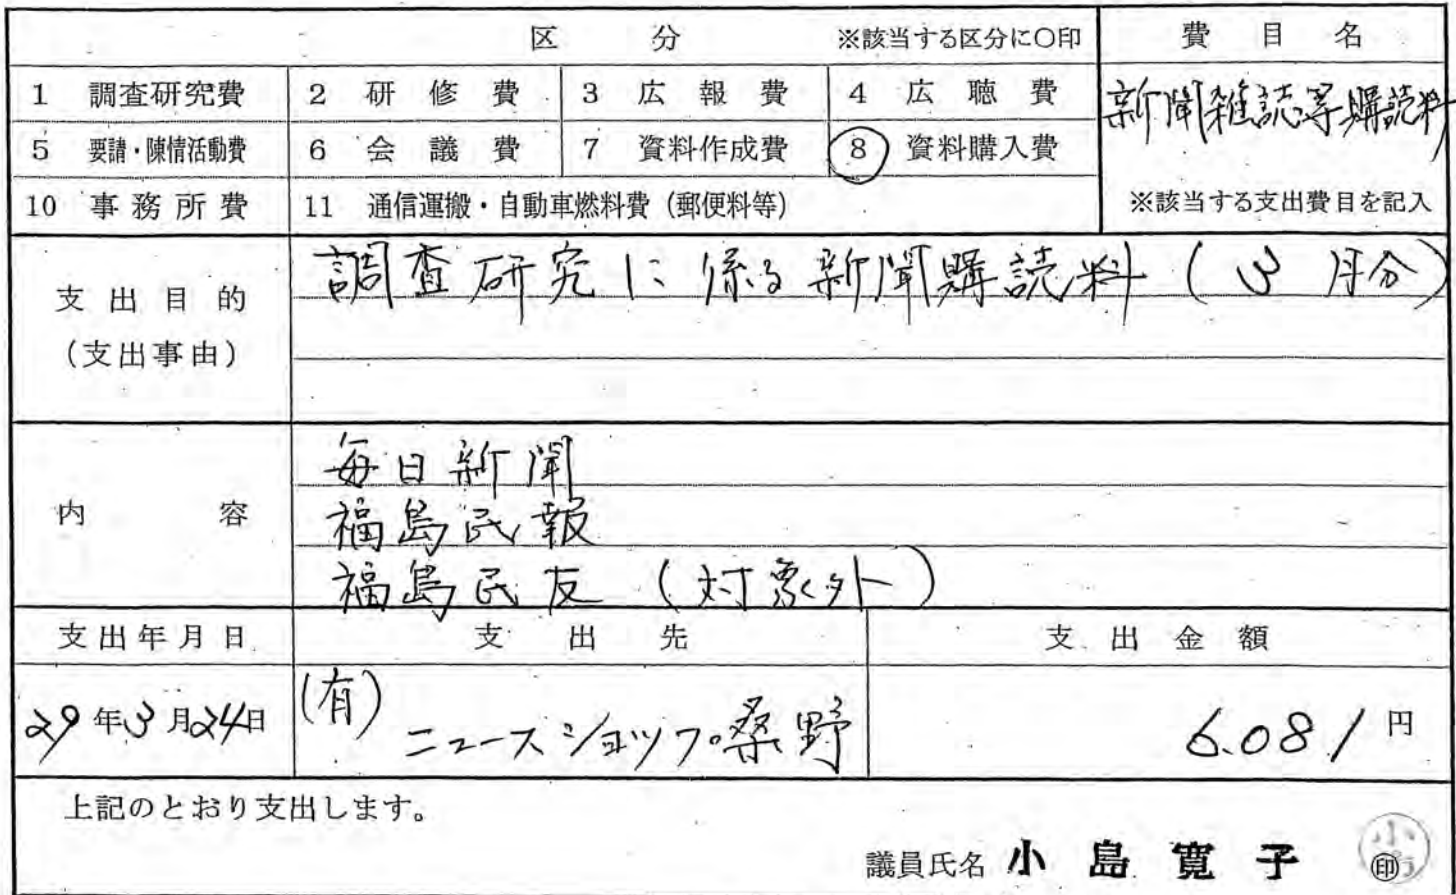 区分 ※該当する区分に○印 費目名
1 調査研究費 2 研修費 3 広報費 4 広聴費 新聞雑誌等購読料
5 要請・陳情活動費 6 会議費 7 資料作成費 8 資料購入費
10 事務所費 11 通信運搬・自動車燃料費(郵便料等) ※該当する支出費目を記入
支出目的
(支出事由)
調査研究に係る新聞購読料(3月分)
内容
毎日新聞
福島民報
福島民友(対象外)
支出年月日 支出先 支出金額
29年3月24日 (有)ニュースショップ桑野 6.081円
上記のとおり支出します。
議員氏名 小島寛子 印